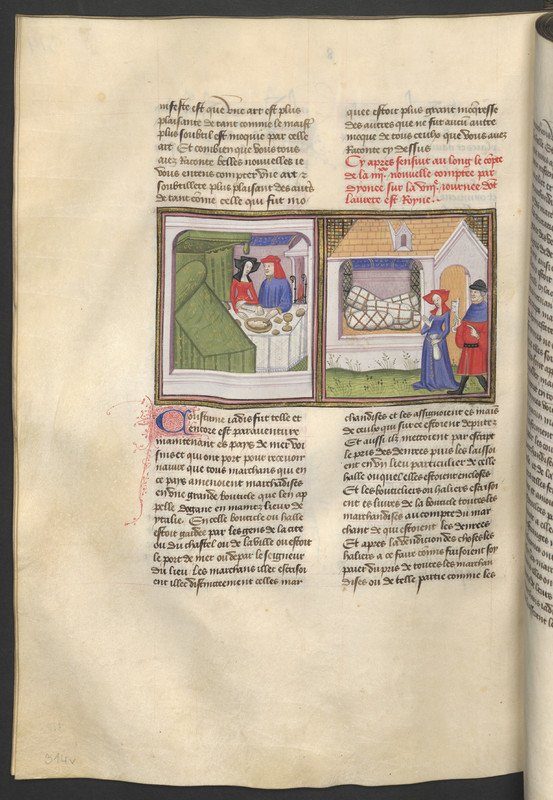 nifeste est que une art est plus
plaisante de tant comme le maist
plus soubtil est moquie par celle
art Et combien que vous tous
avez raconte belles nouvelles ie
vous entens compter une art 
soubtillete plus plaisant des autres
de tant come celle qui fut mo
quee estoit plus grant moqresse
des autres que ne fut autre autre
moque de tous ceulx que vous avez
raconte cy dessus
Cy apres sensuit au long le cote
de la nouvelle comptee par
dyonee sur la viii.e iournee dot
laurete est Royne
Coustume iadis fut telle et
encore est paraventure
maintenant es pays de mer voi
sins et qui ont port pour recevoir
navire que tous marchans qui en
ce pays amenoient marchadises
en une grande bouticle que len ap
pelle degane en maintz lieux de
ytalie. En celle bouticle ou halle
estoit gardee par les gens de la cite
ou du chastel ou de la ville ou estoit
le port de mer ou de par le seigneur
du lieu. Les marchans illec escrisoi
ent illec distinctement celles mar
chandises et les assumoient es mais
de ceulx qui sur ce estoient deputez
Et aussi ilz mectoient par escript
le pris des denrees puis les laissoi
ent en un lieu particulier de celle
halle ouquel elles estoient encloses
Et les bouticliers ou haliers escrisoi
ent es livres de la bouticle toutes les
marchandises au compte du mar
chant de qui estoient les denrees
Et apres la vendicion des choses les
haliers a ce faire comis faisoient soy
paier du pris de toutes les marchan
dises ou de telle partie comme les
314v